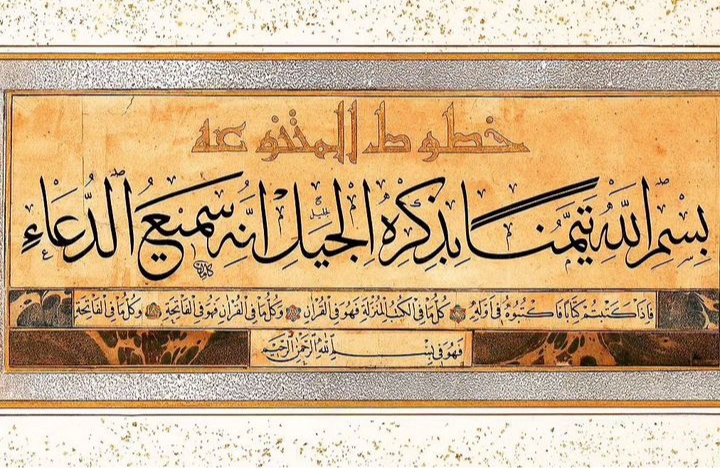 خطوط المتنوعه
بِسْمِ اللّٰهِ تَيَمُّنًا بِذِكْرِهِ الْجَمِيلِ اِنَّهُ سَمِيعُ الدُّعَاءِ
فَاِذَا كَتَبْتُمْ كِتَابًا فَاكْتُبُوهُ فِي اَوَّلِهِ كُلُّ مَا فِي الْكُتُبِ الْمُنْزَلَةِ فَهُوَ فِي الْقُرْآنِ وَكُلُّ مَا فِي الْقُرْآنِ فَهُوَ فِي الْفَاتِحَةِ وَكُلُّ مَا فِي الْفَاتِحَةِ
فَهُوَ فِي بِسْمِ اللّٰهِ الرَّحْمٰنِ الرَّحِيمِ